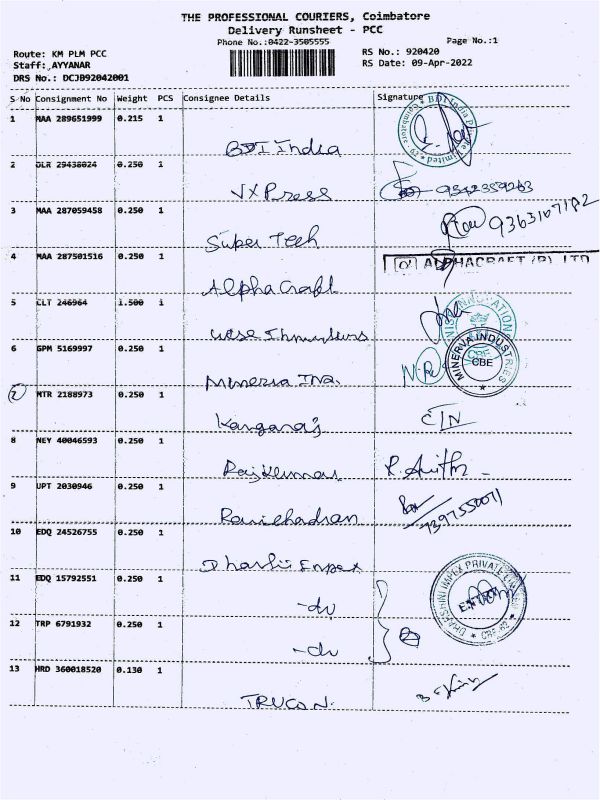 THE PROFESSIONAL COURIERS, Coimbatore
Delivery Runsheet - PCC
Phone No.:0422-3505555 Page No.:1
Route: KM PLM PCC RS No.: 920420
Staff:,AYYANAR RS Date: 09-Apr-2022
DRS No.: DCJB92042001
S No Consignment No Weight PCS Consignee Details Signature
1 MAA 289651999 0.215 1
BDI India
BDI India Private Limited
2 DLR 29438024 0.250 1
VXPress
3 MAA 287059458 0.250 1
Super Tech 9363107182
4 MAA 287501516 0.250 1
Alpha Craft ALPHACRAFT (P) LTD
5 CLT 246964 1.500 1
6 GPM 5169997 0.250 1
Minerva Ind. MINERVA INDUSTRIES CBE
7 MTR 2188973 0.250 1
8 NEY 40046593 0.250 1
Rajkumar
9 UPT 2030946 0.250 1
Ravichadran 7397550071
10 EDQ 24526755 0.250 1
11 EDQ 15792551 0.250 1
-do
12 TRP 6791932 0.250 1
-do
13 HRD 360018520 0.130 1
TRUCON